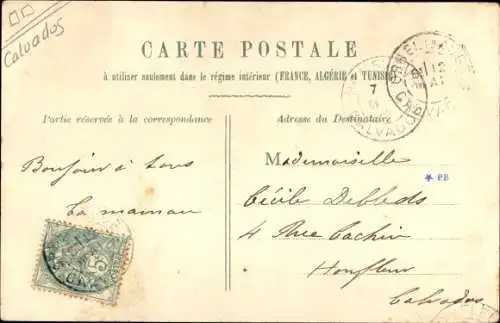 Calvados
CARTE POSTALE
à utiliser seulement dans le régime intérieur (FRANCE, ALGÉRIE et TUNISIE)
Partie réservée à la correspondance
Adresse du Destinataire
Bonjour à tous
La maman
Mademoiselle
* PB
Cécile
4 Rue Cachin
Honfleur
Calvados
7
CALVADOS
5